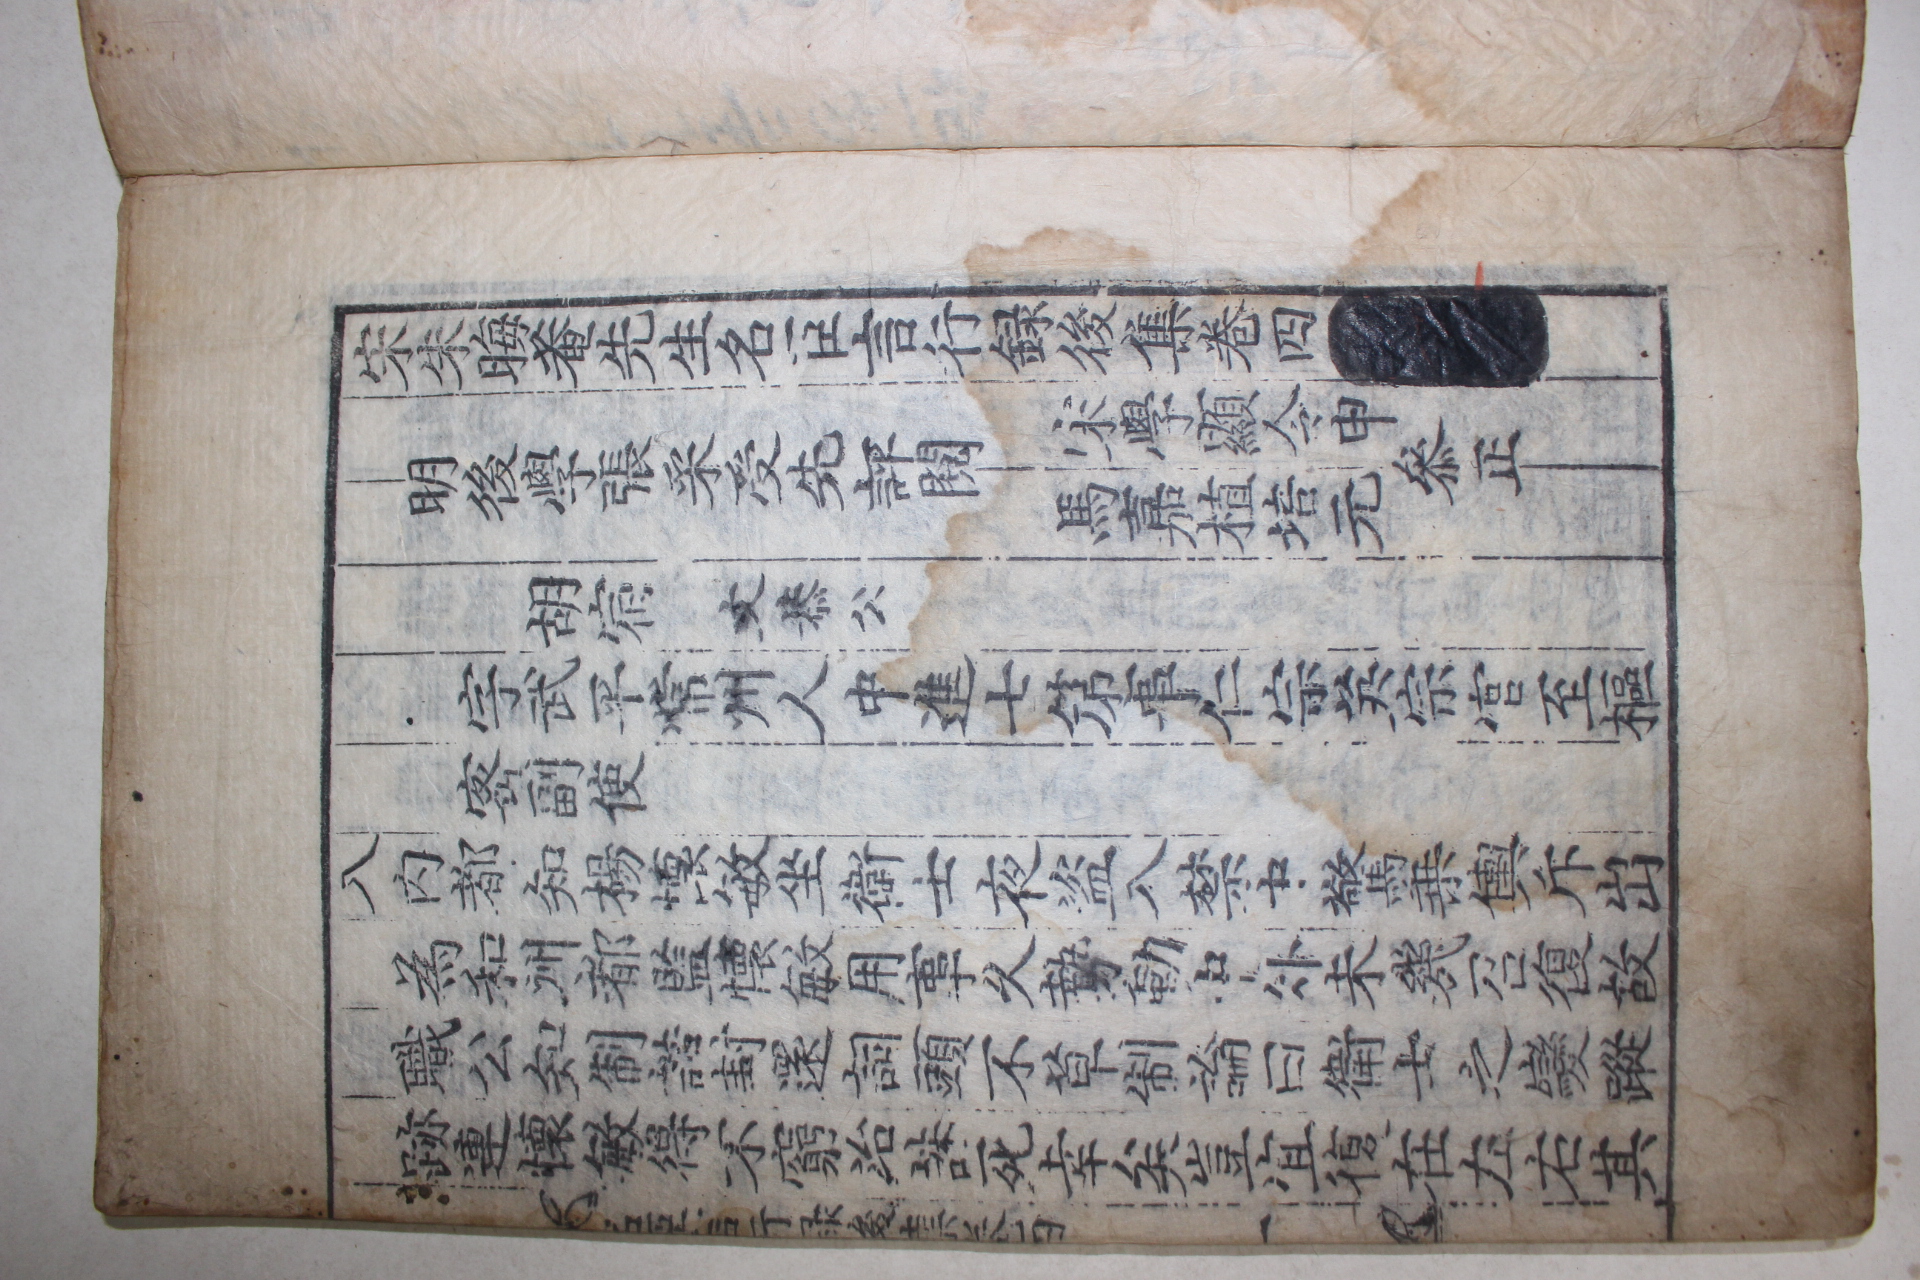 宋朱晦菴先生名臣言行録後集卷四
明後學張采受先評閱
宋學顯令申
馬嘉植培元
叅正
胡宿 文恭公
字武平常州人中進士第事仁宗英宗官至樞
密副使
入内都知楊懷敏坐衛士夜盗入禁中驚乗輿斥出
為和州都監懷敏用事久勢動中外未幾召復故
職公知制誥封還詞頭不草制論曰衛士之變蹤
跡連懷敏得不窮治誅死幸矣豈宜復在左右其
名臣言行録後集卷四
一